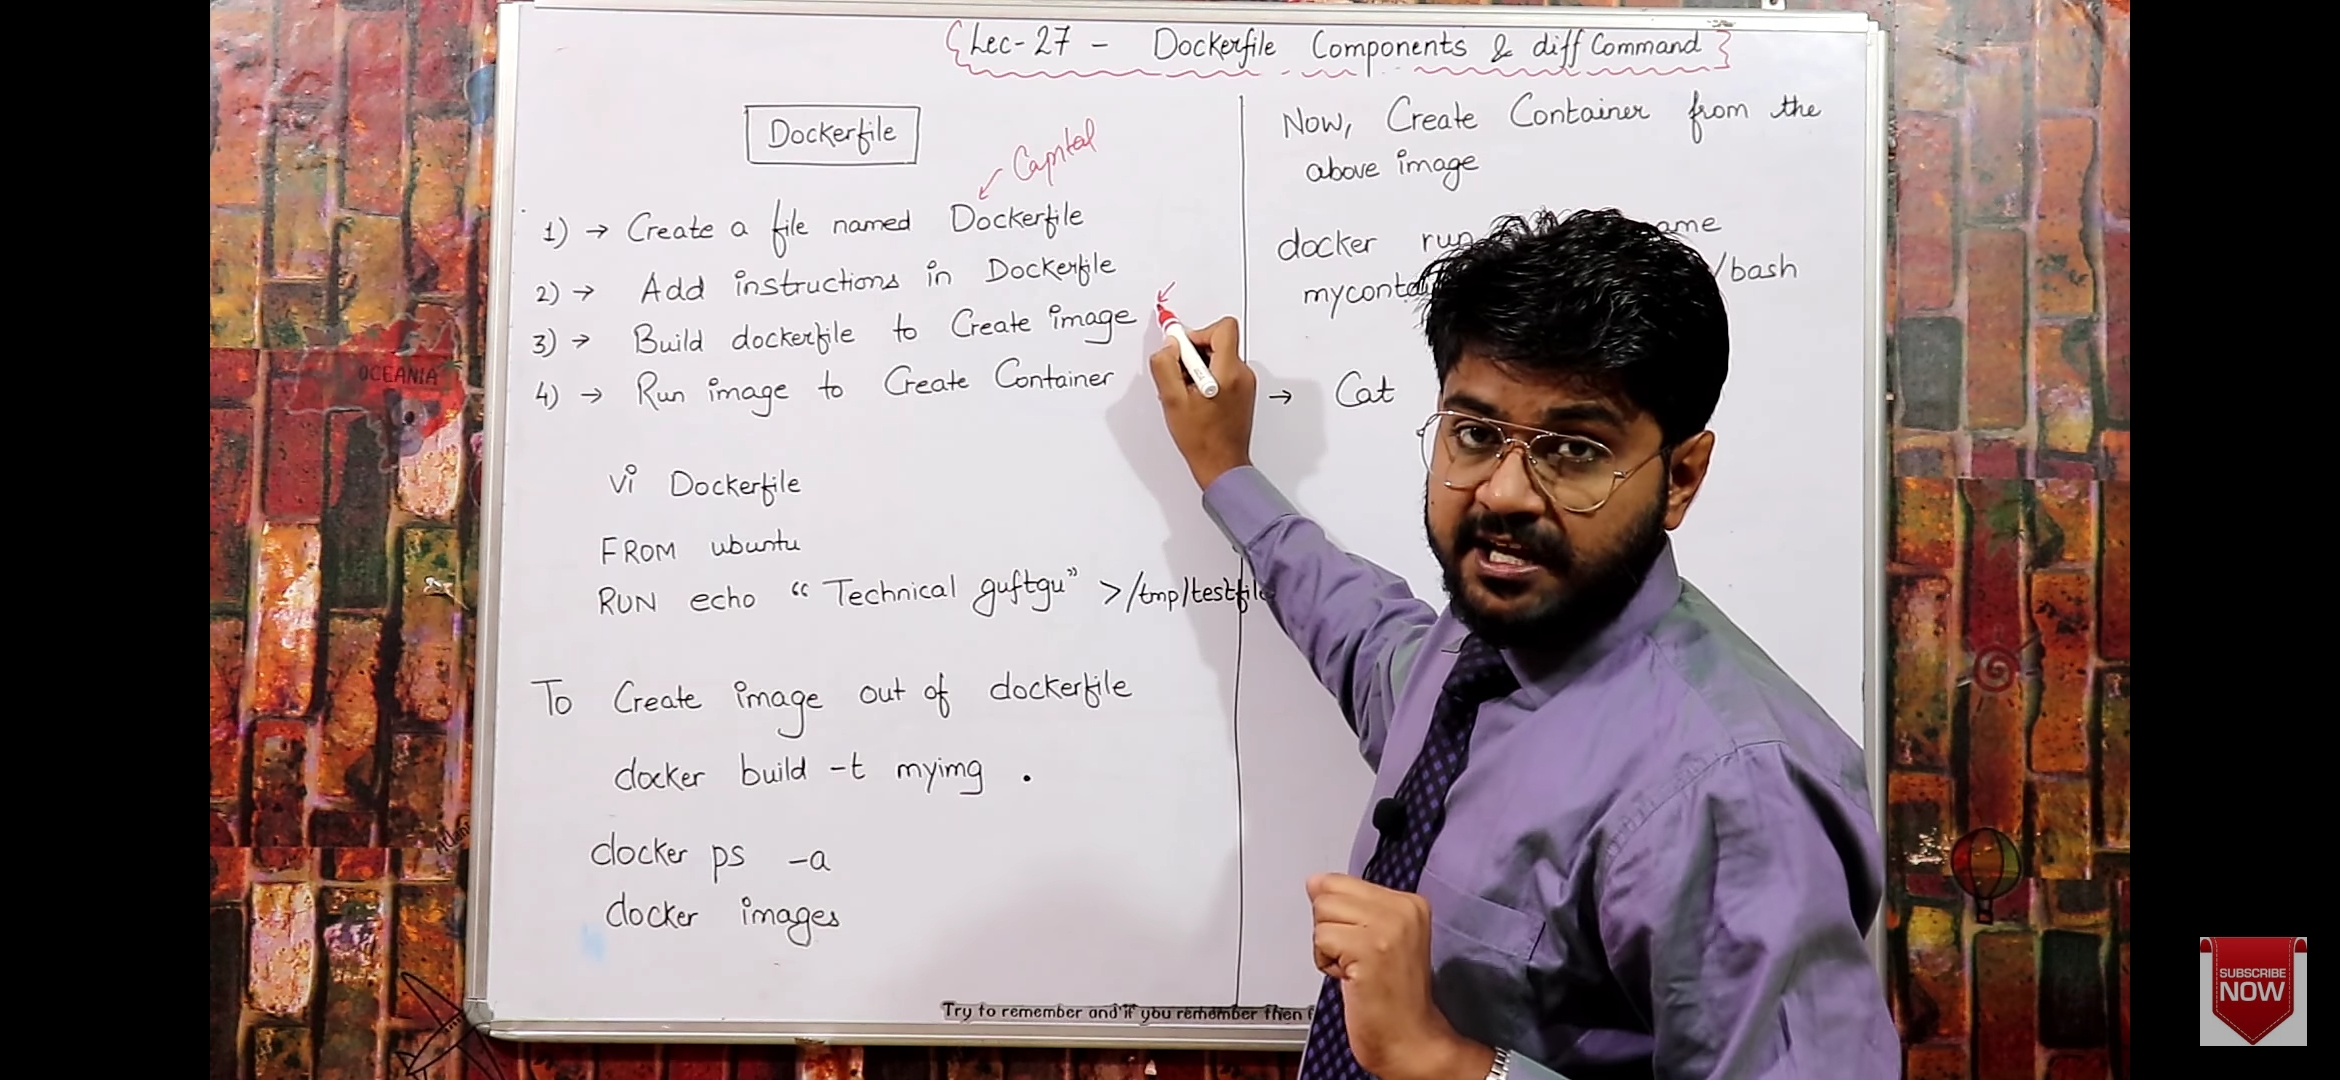 Lec-27 - Dockerfile Components & diff Command
Dockerfile
Capital
1) → Create a file named Dockerfile
2) → Add instructions in Dockerfile
3) → Build dockerfile to Create image
4) → Run image to Create Container
vi Dockerfile
FROM ubuntu
RUN echo “Technical guftgu” >/tmp/testfile
To Create image out of dockerfile
docker build -t myimg .
docker ps -a
docker images
Now, Create Container from the
above image
docker run
/bash
→ Cat
OCEANIA
Try to remember and if you remember then
SUBSCRIBE
NOW